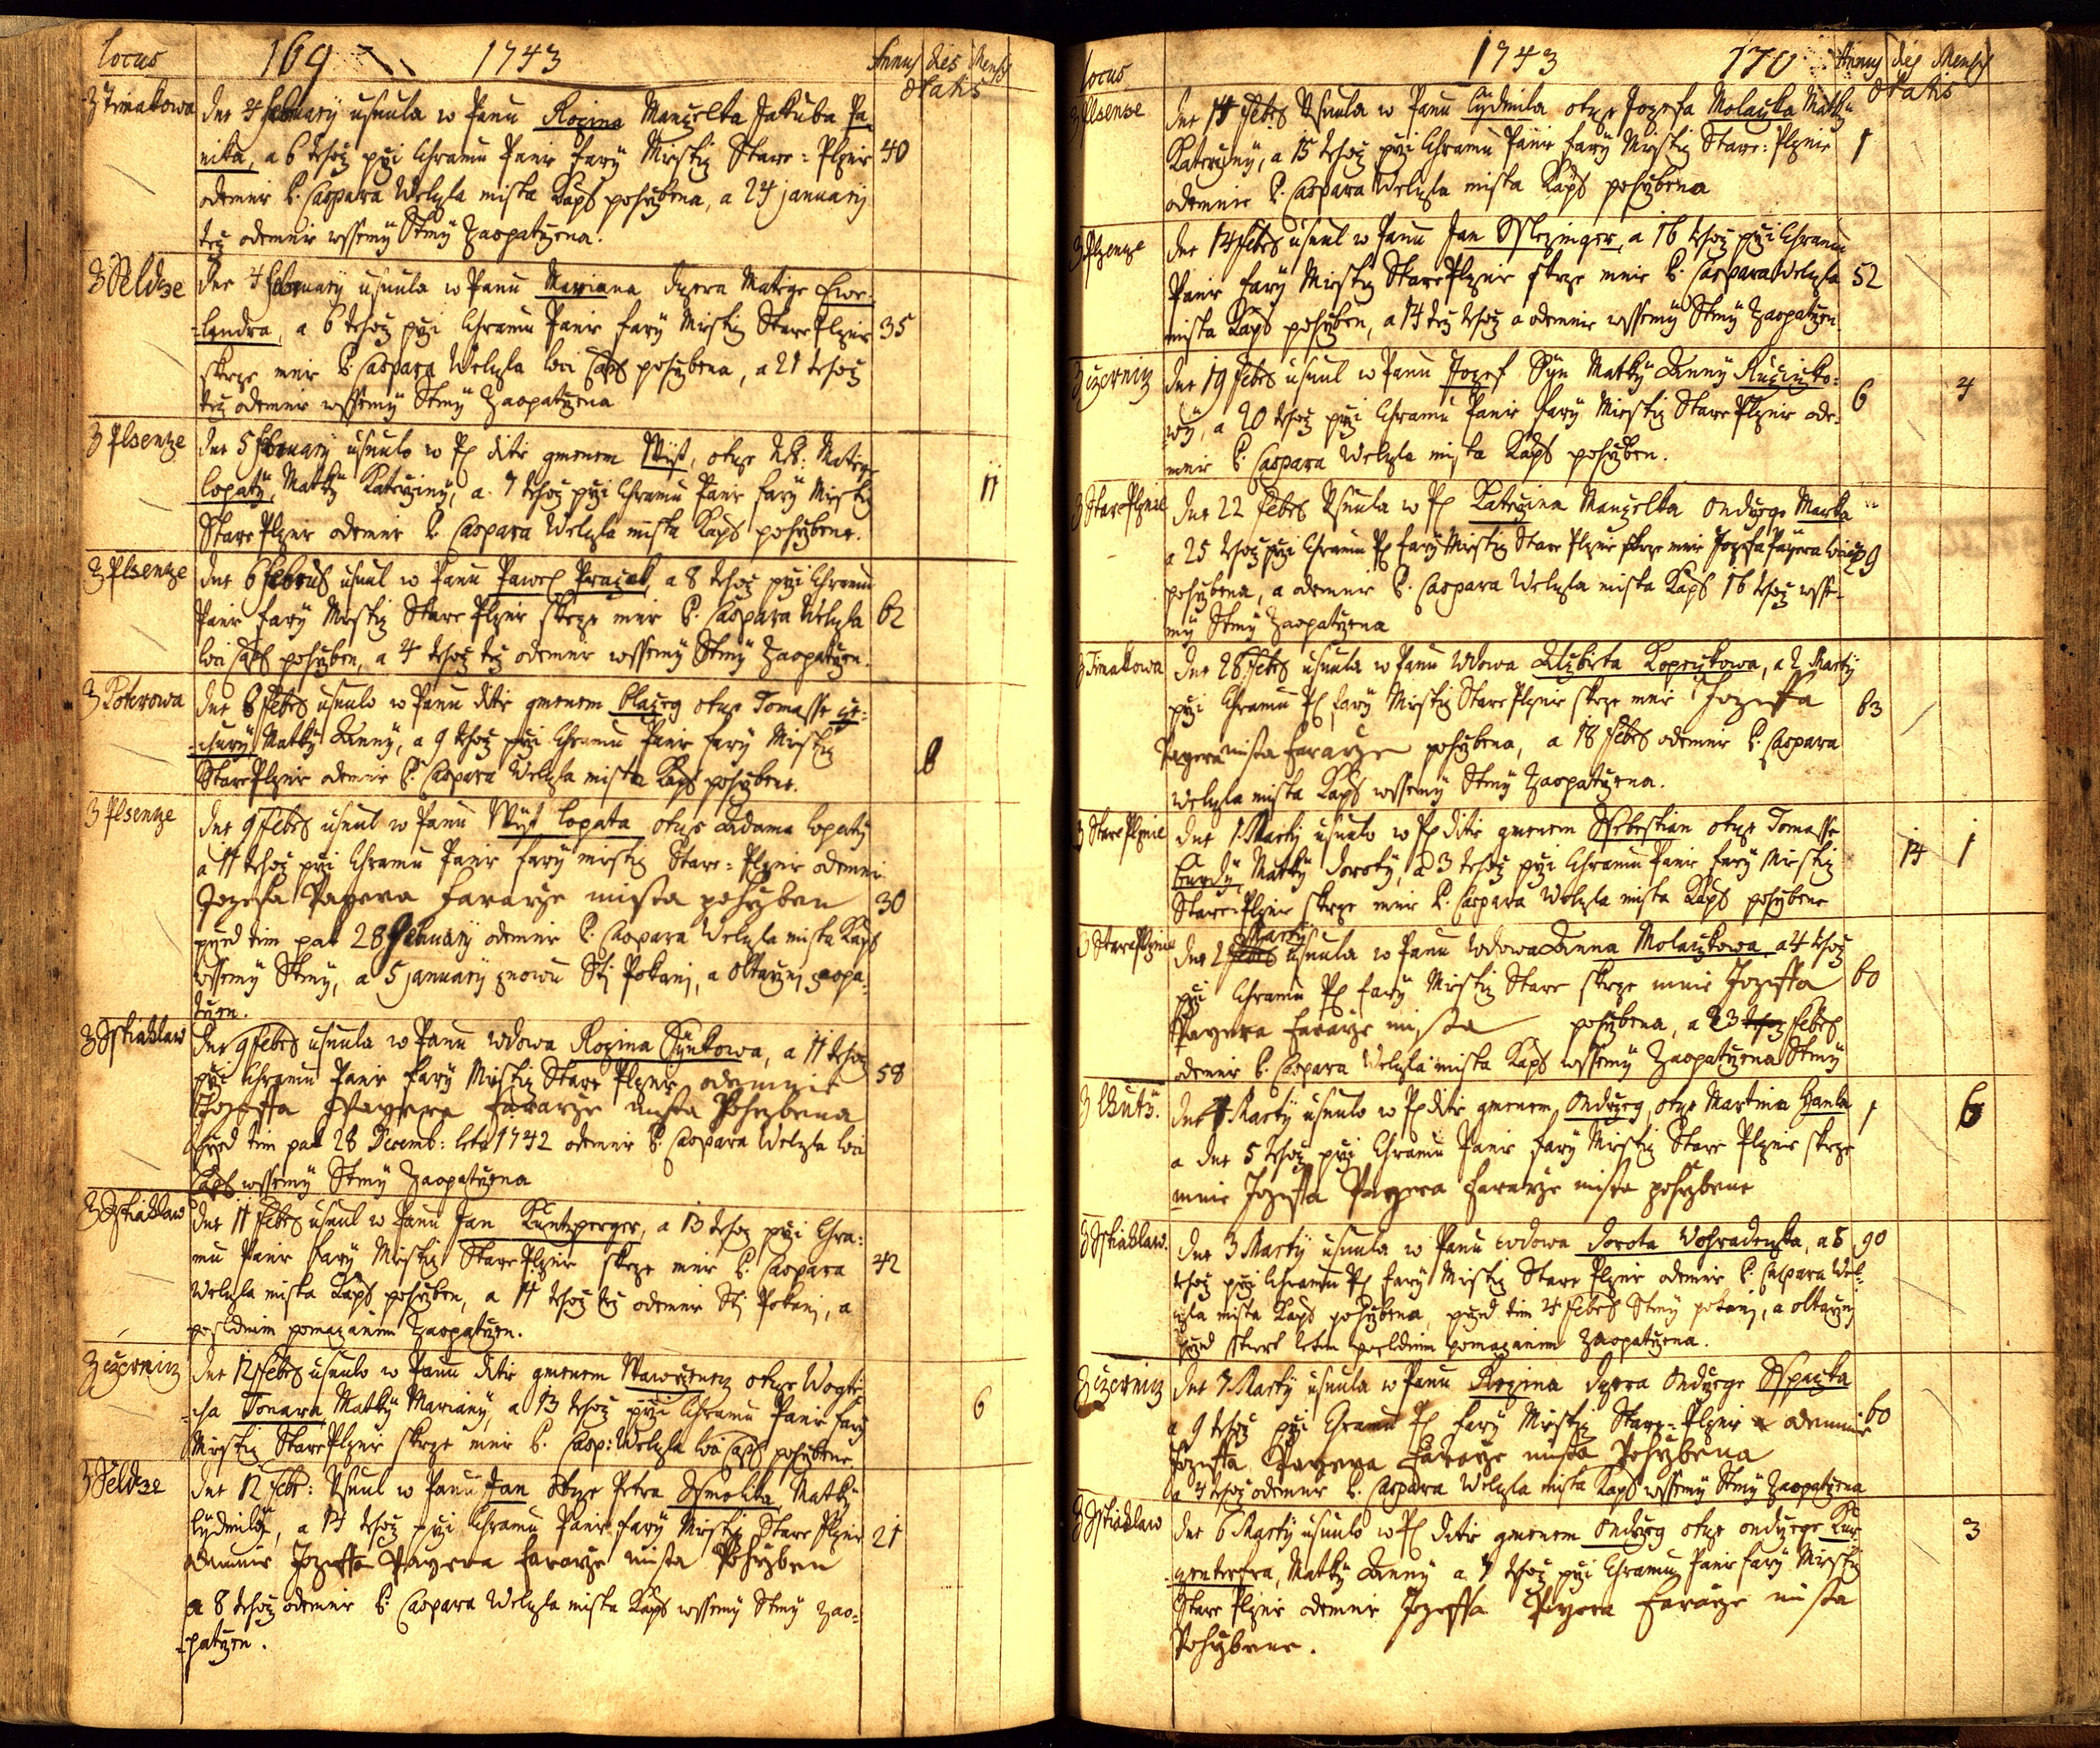 locus 169 1743 Annus dies Mensis
ætatis
Z Timakowa dne 4 february usnula w Panu Rozina Manzelka Jakuba Pa
nika, a 6 tehoz przi Chramu Panie fary Miestiz Stare=Plznie 40
odemnie P. Caspara Welzla mista Kaps pohrzbena, a 24 january
tez odemnie wssemy Stmy Zaopatrzena.
dne 4 february usnula w Panu Mariana dczera Matiege
landra, a 6 tehoz przi Chramu Panie fary Miestiz Stare Plznie 35
skrze mne P. Caspara Welzla loci Caps pohrzbena, a 21 tehoz
tez odemnie wssemy Stmy Zaopatrzena
Z Plsenze dne 5 february usnulo w P. ditie gmenem Wyst, otcze Neb: Matiege
lopaty, Matky Katerziny, a 7 tehoz przi Chramu Panie fary Miestiz 11
Stare Plznie odemnie P. Caspara Welzla mista Kaps pohrzbene.
Z Plsenze dne 6 februs usnul w Panu Pawel Prazak, a 8 tehoz przi Chramu
Panie fary Miestiz Stare Plznie skrze mne P. Caspara Welzla 62
loci Caps pohrzben, a 4 tehoz tez odemnie wssemy Stmy Zaopatrzen.
Z Koterowa dne 8 febrs usnulo w Panu ditie gmenem Blazeg otcze Tomasse
Matky Anny, a 9 tehoz przi Chramu Panie fary Miestiz
Stare Plznie odemnie P. Caspara Welzla mista Kaps pohrzbene. 8
Z Plsenze dne 9 febrs usnul w Panu Wyst lopata otcze Adama lopaty
a 11 tehoz przi Chramu Panie fary miestiz Stare=Plznie odemnie
Jozefa Payera fararze mista pohrzben 30
przed tim pak 28 february odemnie P. Caspara Welzla mista Kaps
wssemy Stmy, a 5 january znowu Sti Pokani, a oltarzni zaopa=
trzen.
Z Sstiahlaw dne 9 febrs usnula w Panu wdowa Rozina Synkowa, a 11 tehoz
przi Chramu Panie fary Miestiz Stare Plznie, odemnie 58
Jozeffa Payera fararze mista Pohrzbena
przed tim pak 28 Decemb: leta 1742 odemnie P. Caspara Welzla loci
Caps wssemy Stmy Zaopatrzena
Z Sstiahlaw dne 11 febrs usnul w Panu Jan Kuntzperger, a 13 tehoz przi Chra=
mu Panie fary Miestiz Stare Plznie skrze mne P. Caspara 42
Welzla mista Kaps pohrzben, a 11 tehoz tez odemnie Sti Pokani, a
poslednim pomazanim Zaopatrzen.
Z czerniz dne 12 febrs usnulo w Panu ditie gmenem Wawrzenez otcze Wogtie=
cha Tonara Matky Mariany, a 13 tehoz przi Chramu Panie fary 6
Miestiz Stare Plznie skrze mne P. Casp: Welzla loci Caps pohrzbene
dne 12 febr: Usnul w Panu Jan otcze Petra Ssmolika Matky
lydmily, a 13 tehoz przi Chramu Panie fary Miestiz Stare Plznie 21
odemnie Jozeffa Payera fararze mista Pohrzben
a 8 tehoz odemnie P. Caspara Welzla mista Kaps wssemy Stmy Zao=
=patrzen.
locus 1743 170 Annus dies Mensis
ætatis
Z Plsenze dne 14 febrs Usnula w Panu lydmila otcze Jozefa Molaczka Matky
Katerziny, a 15 tehoz przi Chramu Panie fary Miestiz Stare=Plznie 1
odemnie P. Caspara Welzla mista Kaps pohrzbena
Z Plzenze dne 14 febrs usnul w Panu Jan Sslezinger, a 16 tehoz przi Chramu
Panie fary Miestiz Stare Plznie skrze mnie P. Caspara Welzla 52
mista Kaps pohrzben, a 14 tez tehoz odemnie wssemy Stmy Zaopatrzen.
Z czerniz dne 19 febrs usnul w Panu Jozef Syn Matky Anny Ruziczko=
wy, a 20 tehoz przi Chramu Panie fary Miestiz Stare Plznie ode= 6 4
mnie P. Caspara Welzla mista Kaps pohrzben.
Z Stare Plznie dne 22 febrs Usnula w P. Katerzina Manzelka Ondrzege Marka
a 25 tehoz przi Chramu P. fary Miestiz Stare Plznie skrze mnie Jozefa Payera 29
pohrzbena, a odemnie P. Caspara Welzla mista Kaps 16 tehoz wsse=
my Stmy Zaopatrzena
Z Timakowa dne 28 febrs usnula w Panu Wdowa Alzbieta Kopeczkowa, a 2 Marty
przi Chramu P. fary Miestiz Stare Plznie skrze mnie Jozeffa 63
Payera mista fararze pohrzbena, a 18 febrs odemnie P. Caspara
Welzla mista Kaps wssemy Stmy Zaopatrzena.
Z Stare Plznie dne 1 Marty usnulo w P. ditie gmenem Ssebestian otcze Tomasse
Burdy, Matky doroty, a 3 tehoz przi Chramu Panie fary Miestiz 14 1
Stare=Plznie skrze mnie P. Caspara Welzla mista Kaps pohrzbene
Z Stare Plznie dne 2 Marty usnula w Panu wdowa Anna Molaczkowa, a 4 tehoz
przi Chramu P. fary Miestiz Stare skrze mnie Jozeffa 60
Payera fararze mista pohrzbena, a 23 febrs
odemnie P. Caspara Welzla mista Kaps wssemy Zaopatrzena Stmy
dne 4 Marty usnulo w P. ditie gmenem Ondrzeg, otcze Martina Hanla 1 6
a dne 5 tehoz przi Chramu Panie fary Miestiz Stare Plznie skrze
mnie Jozeffa Payera fararze mista pohrzbene
Z Sstiahlaw. dne 3 Marty usnula w Panu wdowa dorota Wohradenska, a 5 90
tehoz przi Chramu P. fary Miestiz Stare Plznie odemnie P. Caspara Wel=
zla mista Kaps pohrzbena, przed tim 4 febrs Stmy pokani, a oltarzni
przed letem poslednim pomazanim Zaopatrzena.
Z czerniz dne 7 Marty usnula w Panu Rozina dczera Ondrzege Sspaczka
a 9 tehoz przi Chramu P. fary Miestiz Stare=Plznie odemnie 60
Jozeffa Payera fararze mista Pohrzbena
a 4 tehoz odemnie P. Caspara Welzla mista Kaps wssemy Stmy Zaopatrzena
Z Sstiahlaw dne 6 Marty usnulo w P. ditie gmenem Ondrzeg otcze Ondrzege 3
Matky Anny a 7 tehoz przi Chramu Panie fary Miestiz
Stare Plznie odemnie Jozeffa Payera fararze mista
Pohrzbene.